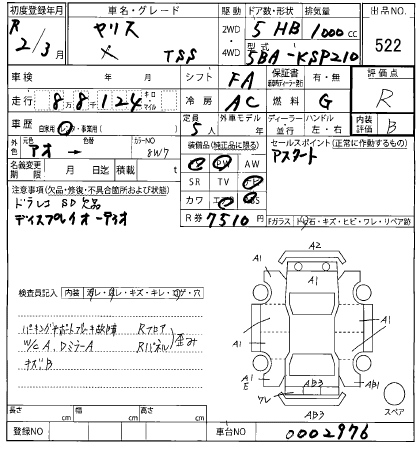 初度登録年月 車名・グレード 駆動 ドア数・形状 排気量 出品NO.
R 2/3月 ヤリス X TSS 2WD・4WD 5 HB 1000 cc 522
型式 5BA-KSP210
車検 年 月 シフト FA 保証書 有・無 評価点
走行 88124 キロ マイル 冷房 AC 燃料 G R
車歴 自家用 レンタ・事業用( ) 定員 5人 外車モデル 年 ディーラー 並行 ハンドル 左・右 内装 B
外色 元色 アオ → 色替 カラーNO 8W7
装備品(純正品に限る) セールスポイント(正常に作動するもの)
PS PW AW アスタート
名義変更期限 月 日迄 積載 t SR TV ナビ
注意事項(欠品・修復・不具合箇所および状態) カワ エアB ABS
ドラレコ SD欠品 R券 7510円
ディスプレイオーディオ Fガラス トビ石・キズ・ヒビ・ワレ・リペア跡
検査員記入 内装 コゲ・穴
パーキングサポートブレーキ故障 Rフロア
W/C A、DミラーA Rパネル 歪み
キズB
A2
A1 A1
A1 A1
A1 E A1 AB3 AB1
ワレ AB3 スペア
長さ cm 幅 cm 高さ cm
登録NO 車台NO 0002976